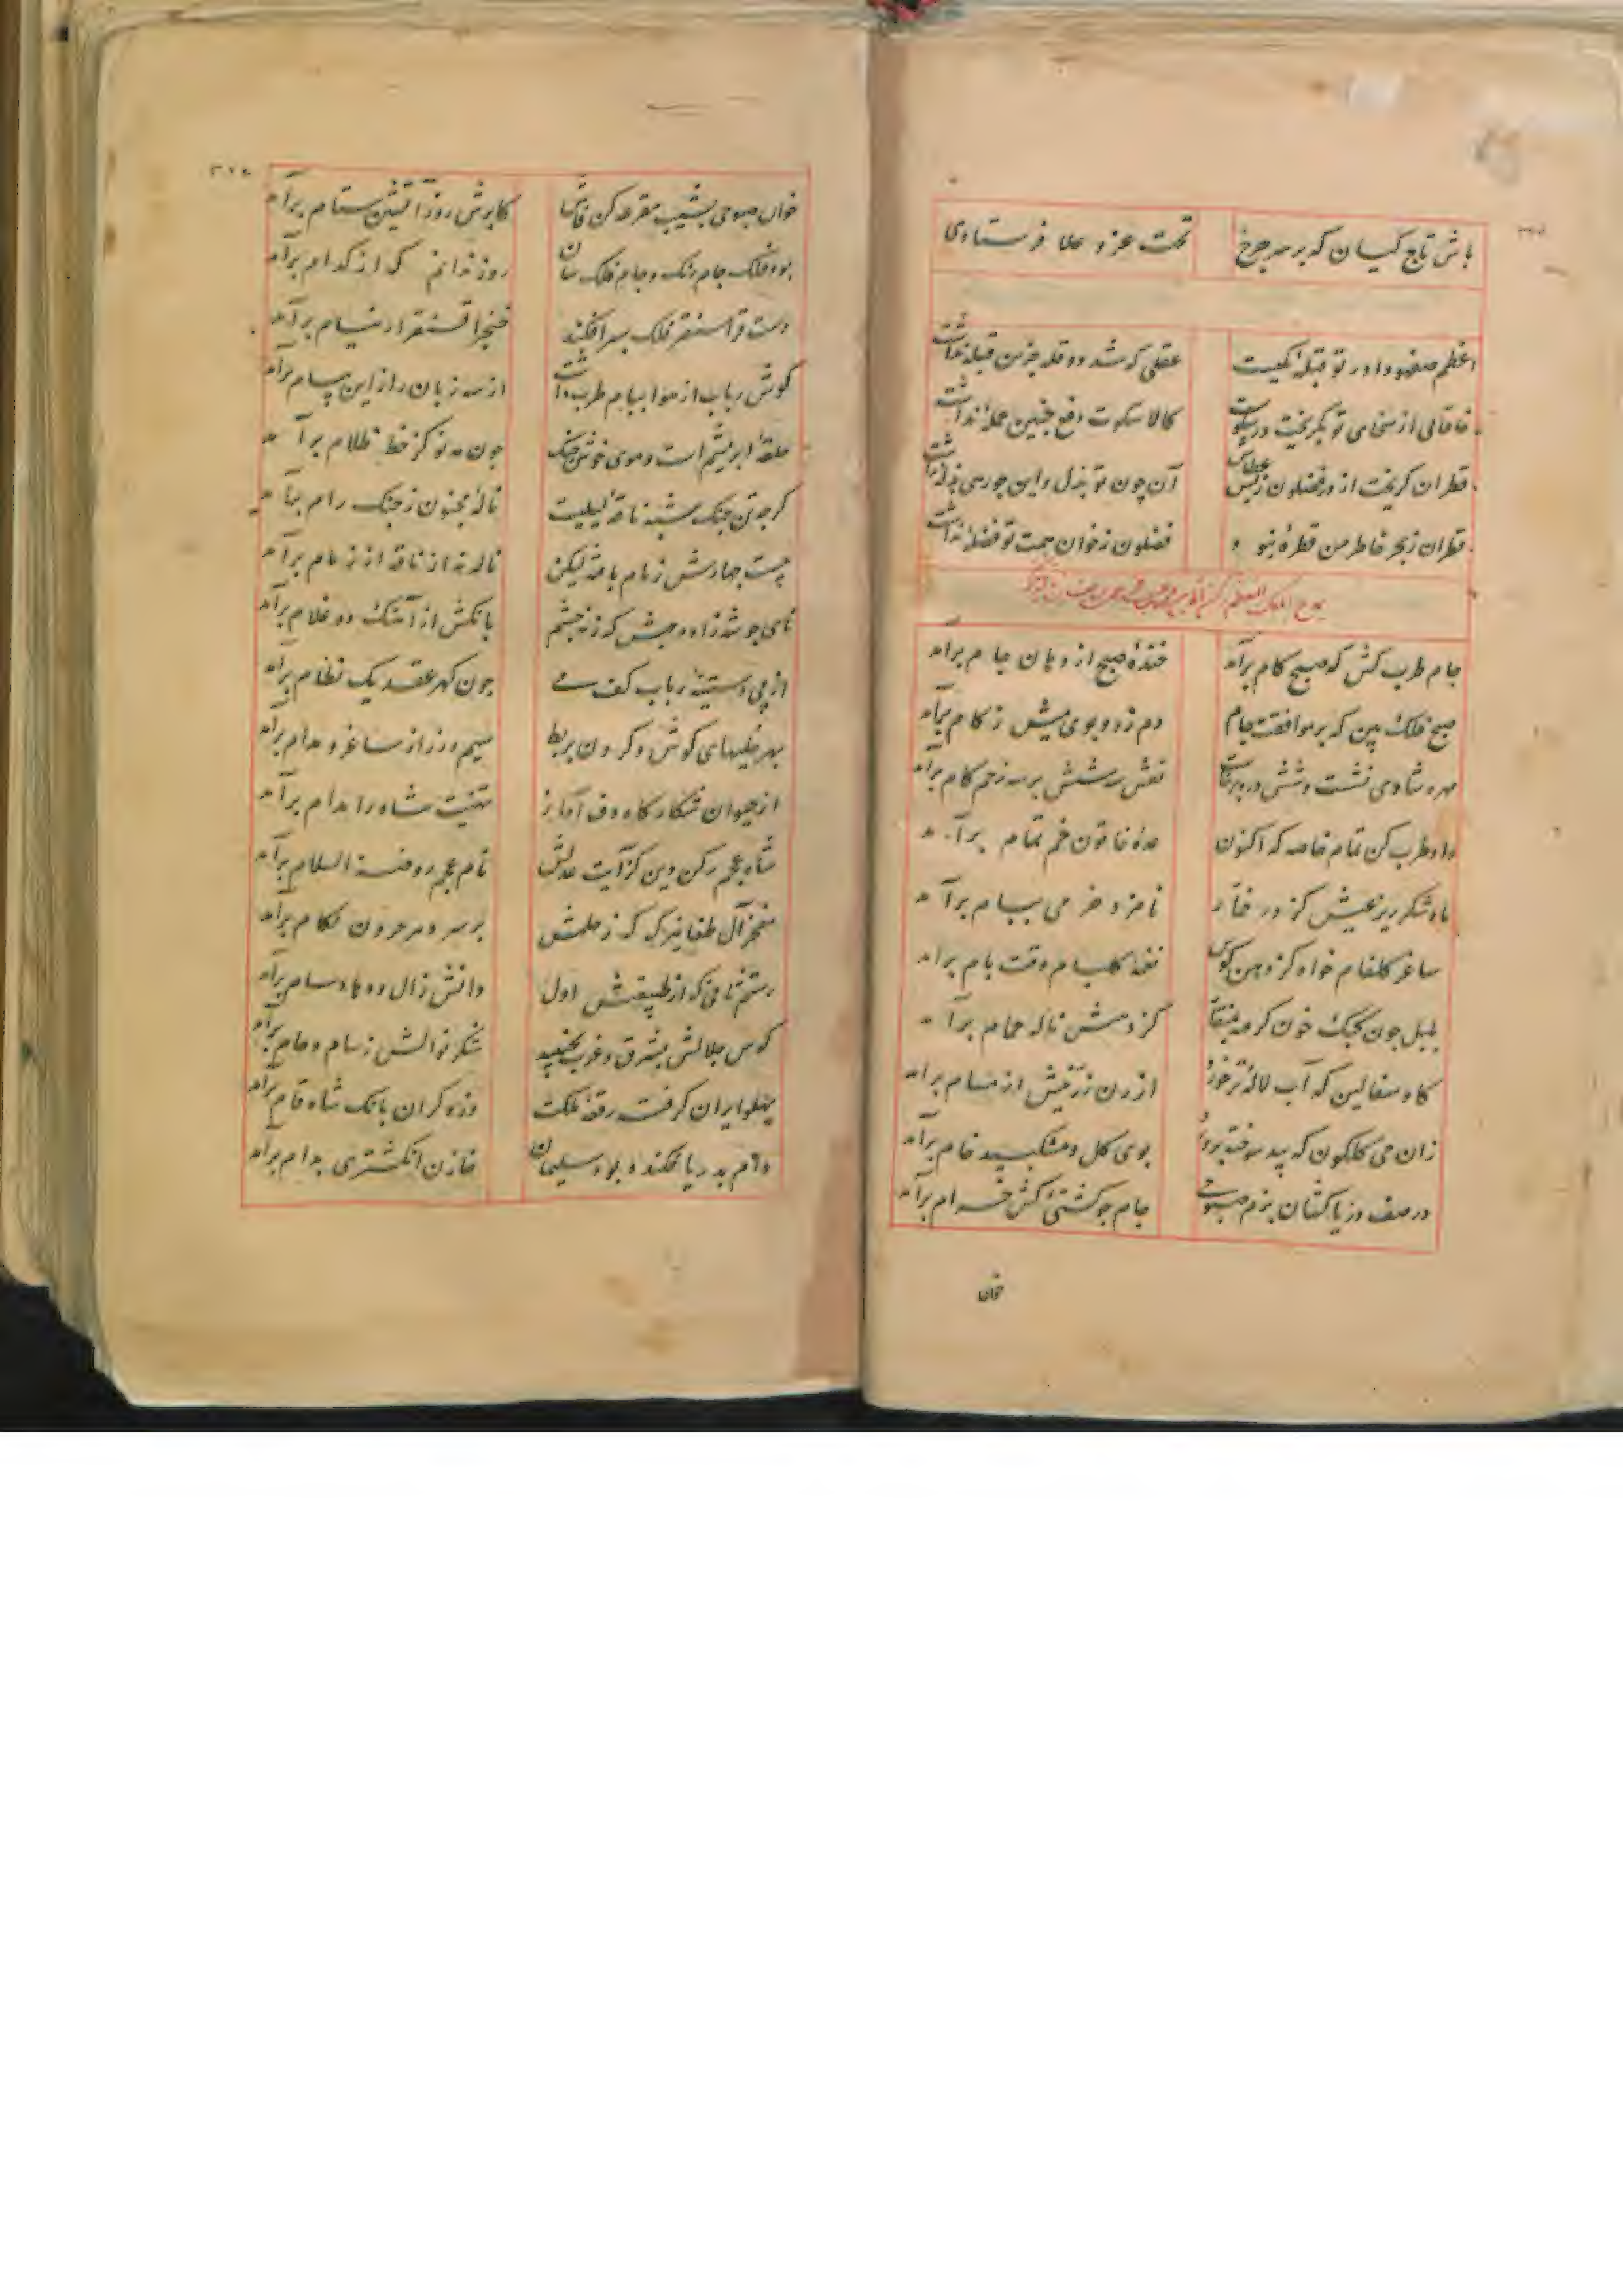 باش تاج کیان که بر سر چرخ تخت عز و علا فرستادی
اعظم سپهبدا در تو قبله کمیت عقلی که شد دو قله جز این قبله نداشت
خاقانی از سخای تو بگریخت در سکوت کالا سکوت دفع چنین حمله نداشت
قطران گریخت از در فضلون ز بس عطاش آن چون تو بذل و این چو رهی نداشت
قطران ز بحر خاطر من قطره نبود فضلون ز خوان همت تو فضله نداشت
مدح الملک المعظم رکن الدین
جام طرب کش که صبح کام برآمد خنده صبح از دهان جام برآمد
صبح فلک بین که بر موافقت جام دم زد و بوی میش ز کام برآمد
مهره شادی نشست و ششدره برخاست نقش سه شش بر سه زخم کام برآمد
داد طرب کن تمام خاصه که اکنون عده خاتون خم تمام برآمد
باد شکرریز عیش کز در خمار نامزد خرمی ببام برآمد
ساغر گلفام خواه کز دهن کوس نغمه گلبام وقت بام برآمد
بلبله چون کبک خون گرفته بمنقار کز دهنش ناله حمام برآمد
گاو سفالین که آب لاله تر خورد ارزن زرینش از مسام برآمد
زان می گلگون که بید سوخته پرورد بوی گل و مشک بید خام برآمد
در صف دریاکشان بزم صبوحی جام چو کشتی کش خرام برآمد
خوان
خوان صبوحی بشیب مقرعه کن لاش کابرش روز آتشین ستام برآمد
بود فلک جام رنگ و جام فلک سان روز ندانم که از کدام برآمد
دست قراسنقر فلک سپر افکند خنجر آقسنقر از نیام برآمد
گوش رباب از هوا پیام طرب داشت از سه زبان راز این پیام برآمد
حلقه ابریشم است و موی خوش چنگ چون مه نو کز خط ظلام برآمد
گرچه تن چنگ شبه ناقه لیلیست ناله مجنون ز چنگ رام برآمد
چست مهارش زمام بافته لیکن ناله نه از ناقه از زمام برآمد
نای چو شه زاده حبش که ز نه چشم بانگش از آهنگ ده غلام برآمد
از پی دستینه رباب کف می چون گهر عقد یک نظام برآمد
بهر حلیهای گوش و گردن بربط سیم و زر از ساغر و مدام برآمد
از حیوان شکارگاه دف آواز تهنیت شاه را مدام برآمد
شاه عجم رکن دین کز آیت عدلش نام عجم روضة السلام برآمد
مفخر آل طغان یزک که ز حلمش بر سر دهر حرون لگام برآمد
رستم ثانی که از طبیعتش اول دانش زال و دهای سام برآمد
کوس جلالش بشرق و غرب بجنبید شکر نوالش ز سام و حام برآمد
پهلو ایران گرفت رقعه ملکت وز دگران بانگ شاه قام برآمد
دام بدریا فکنده بود سلیمان خازن انگشتری بدام برآمد